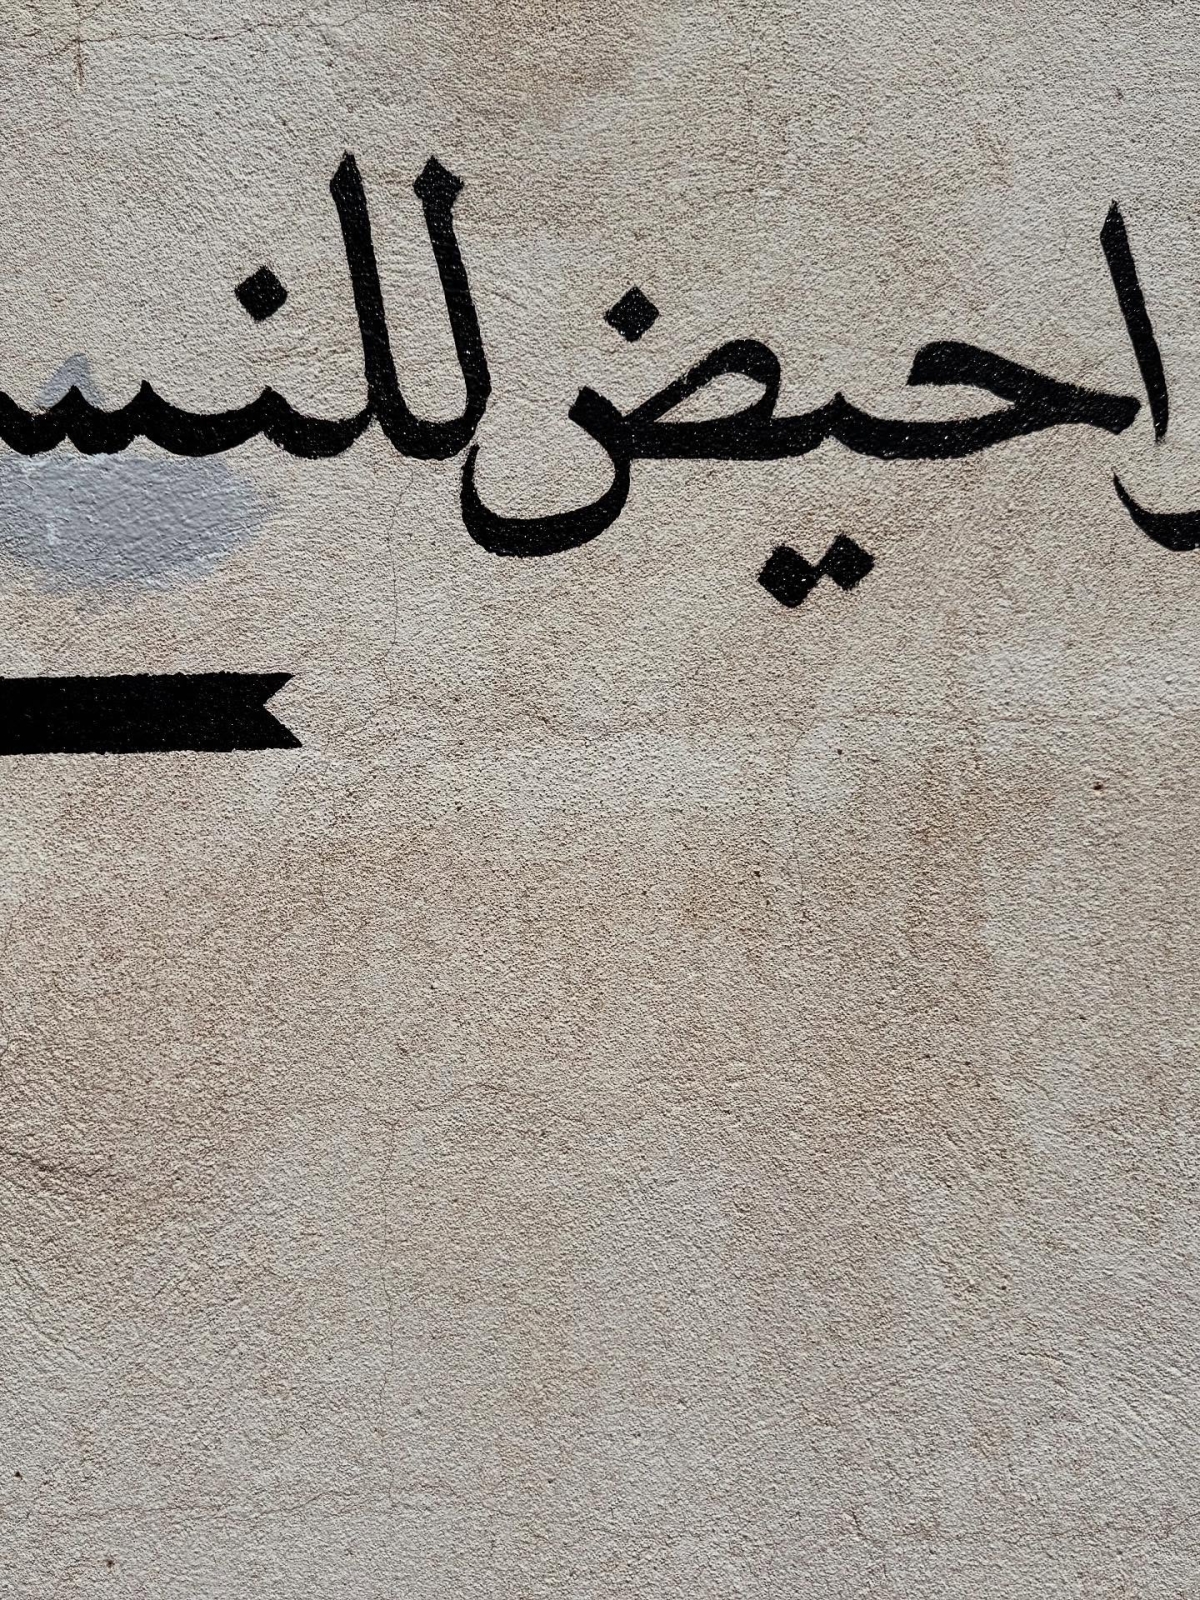 راحيض للنسـ